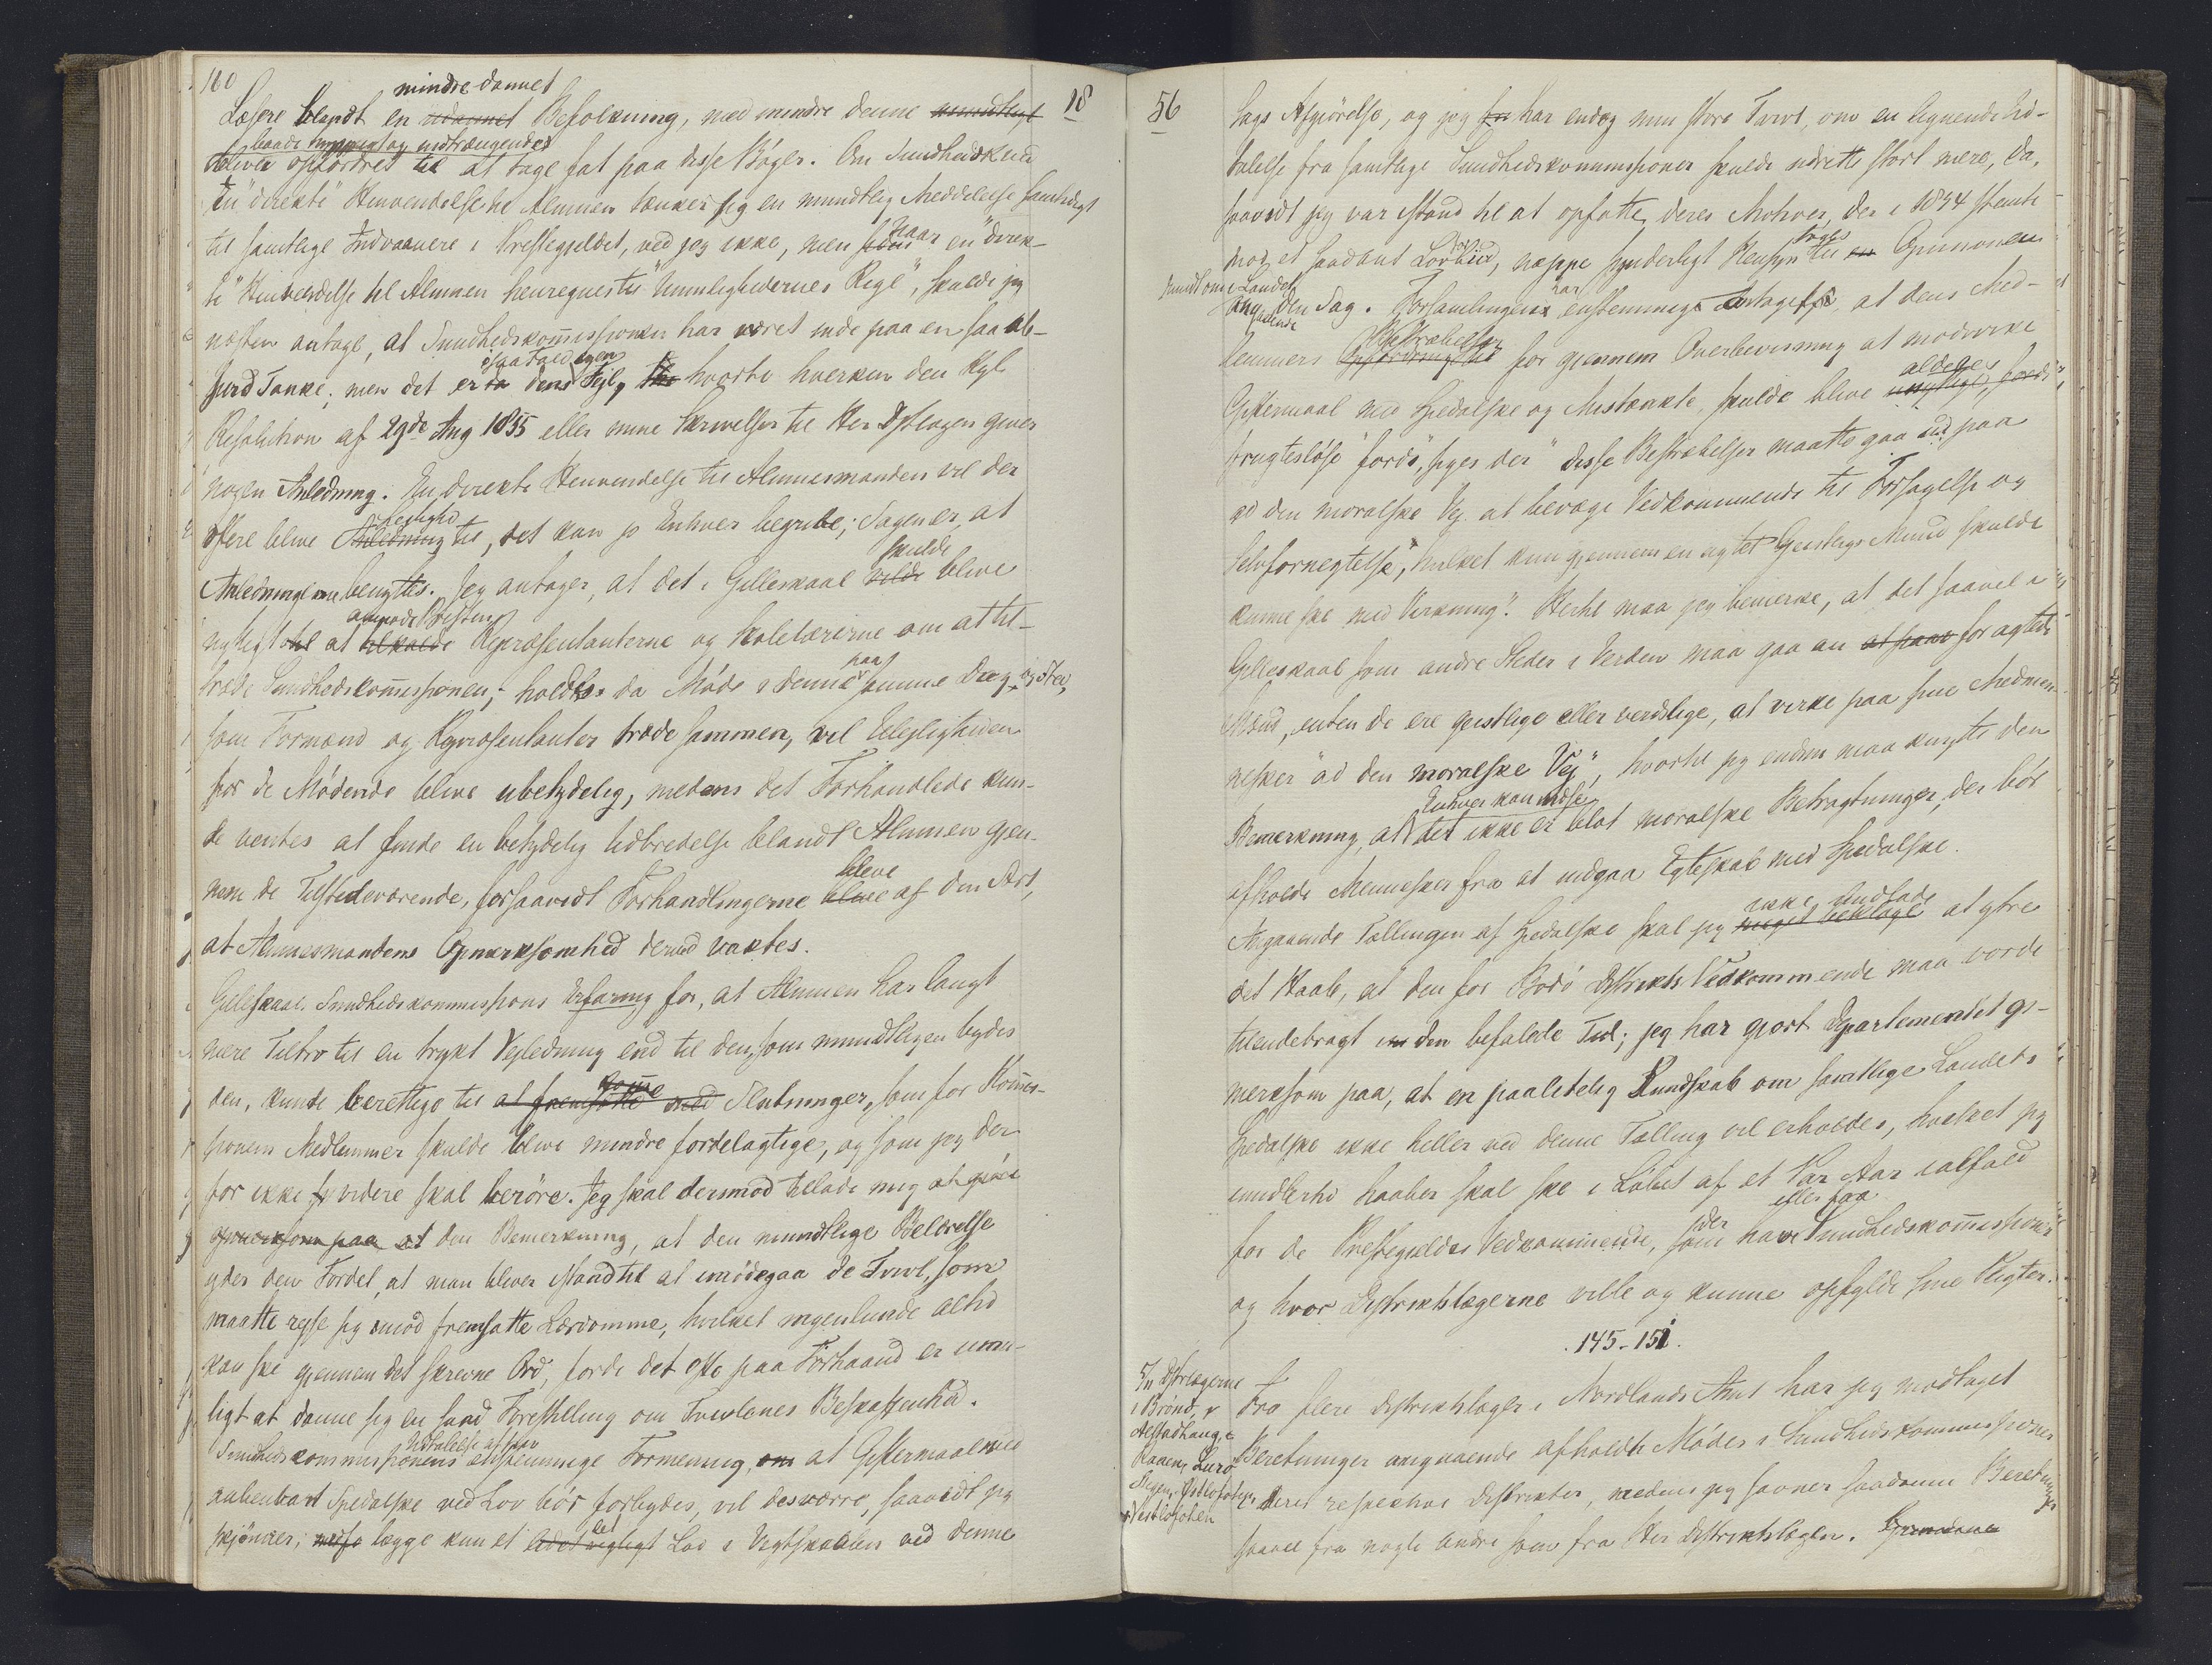 160
mindre dannet
Læsere blandt en udannet Befolkning, med mindre denne mundtligt
baade hyppigt og indtrængende
bliver opfordret til at tage fat paa disse Bøger. Om Sundhedskom
en "direkte" Henvendelse til Almuen tænker sig en mundtlig Meddelelse samtidigt
til samtlige Indvaanere i Præstegjeldet, ved jeg ikke, men som naar en "direk-
te" Henvendelse til Almuen henregnes til "Umulighedernes Rige", skulde jeg
næsten antage, at Sundhedskommissionen har været inde paa en saa ab-
surd Tanke; men det er da dens i saa Fald egen Fejl, hvortil hverken den Kgl.
Resolution af 29de Aug 1855 eller mine Skrivelser til Her Dstlægen giver
nogen Anledning. En direkte Henvendelse til Almuesmanden vil der
oftere blive Anledning Leilighed til, det kan jo Enhver begribe; Sagen er, at
Anledningen benyttes. Jeg antager, at det i Gilleskaal vilde skulde blive
anmode Præsten
nyttigt at tilkalde Repræsentanterne og Skolelærerne om at til-
træde Sundhedskommissionen; holdtes da Møde i denne paa samme Dag og Sted,
som Formænd og Repræsentanter træde sammen, vil Ulejligheden
for de Mødende blive ubetydelig, medens det Forhandlede kun-
de ventes at finde en betydelig Udbredelse blandt Almuen gjen-
nem de Tilstedeværende, forsaavidt Forhandlingerne bleve af den Art,
at Almuesmandens Opmærksomhed derved vaktes.
Gilleskaal Sundhedskommissions Erfaring for, at Almuen har langt
mere Tiltro til en trykt Vejledning end til den, som mundtligen bydes
den, kunde berettige til at fremsætte komme med Slutninger, som for Kommis-
sionens Medlemmer skulde blive mindre fordelagtige, og som jeg der
for ikke videre skal berøre. Jeg skal derimod tillade mig at gjøre
opmærksom paa at den Bemerkning, at den mundtlige Belærelse
yder den Fordel, at man bliver istand til at imødegaa de Tvivl, som
maatte rejse sig imod fremsatte Lærdomme, hvilket ingenlunde altid
kan ske gjennem det skrevne Ord, fordi det ofte paa Forhaand er umu-
ligt at danne sig en sand Forestilling om Tvivlenes Beskaffenhed.
Sundhedskommissionens Udtalelse af sin enstemmige Formening, om at Giftermaal med
aabenbart Spedalske ved Lov bør forbydes, vil desværre, saavidt jeg
skjønner, lægge kun et let Lod i Vegtskaalen ved denne
18
56
Sags Afgjørelse, og jeg har endog min store Tvivl, om en lignende Ud-
talelse fra samtlige Sundhedskommissioner skulde udrette stort mere, da,
saavidt jeg var istand til at opfatte deres Motiver, der i 1854 stemte
mod et saadant Lovbud, næppe synderligt Hensyn toges til en Opinionen
rundt om i Landet
angaaende den Sag. Forsamlingen har enstemmigt antaget, at dens Med-
lemmers Opfordring til Bestræbelser for gjennem Overbevisning at modvirke
Giftermaal med Spedalske og Mistænkte, skulde blive unyttige, fordi aldeles
frugtesløse "fordi", siges der "disse Bestræbelser maatte gaa ud paa
ad den moralske Vej at bevæge Vedkommende til Forsagelse og
Selvfornegtelse", hvilket kun gjennem en agtet Geistligs Mund skulde
kunne ske med Virkning". Hertil maa jeg bemerke, at det saavel i
Gilleskaal som andre Steder i Verden maa gaa an for agtede
Mænd, enten de ere geistlige eller verdslige, at virke paa sine Medmen-
nesker "ad den moralske Vej", hvortil jeg endnu maa knytte den
Bemerkning, at Enhver kan indse det ikke er blot moralske Betragtninger, der bør
afholde Mennesker fra at indgaa Egteskab med Spedalske.
Angaaende Tællingen af Spedalske skal jeg meget beklage ikke undlade at ytre
det Haab, at den for Bodø Distrikts Vedkommende maa vorde
tilendebragt i den befalede Tid; jeg har gjort Departementet op-
merksom paa, at en paalidelig Kundskab om samtlige Landets
Spedalske ikke heller ved denne Tælling vil erholdes, hvilket jeg
imidlertid haaber skal ske i Løbet af et Par Aar ialfald
for de Præstegjeldes Vedkommende, som der have eller faa Sundhedskommissioner
og hvor Distriktslægerne ville og kunne opfylde sine Pligter.
145-151.
5/11 Dstrlægerne
i Brønø,
Alstadhaug,
Ranen, Lurø
Stegen, Østlofoten,
Vestlofoten
Fra flere Distriktslæger i Nordlands Amt har jeg modtaget
Beretninger angaaende afholdte Møder i Sundhedskommissioner
i deres respektive Distrikter, medens jeg savner saadanne Beretninger
saavel fra nogle andre som fra Her Distriktslægen.